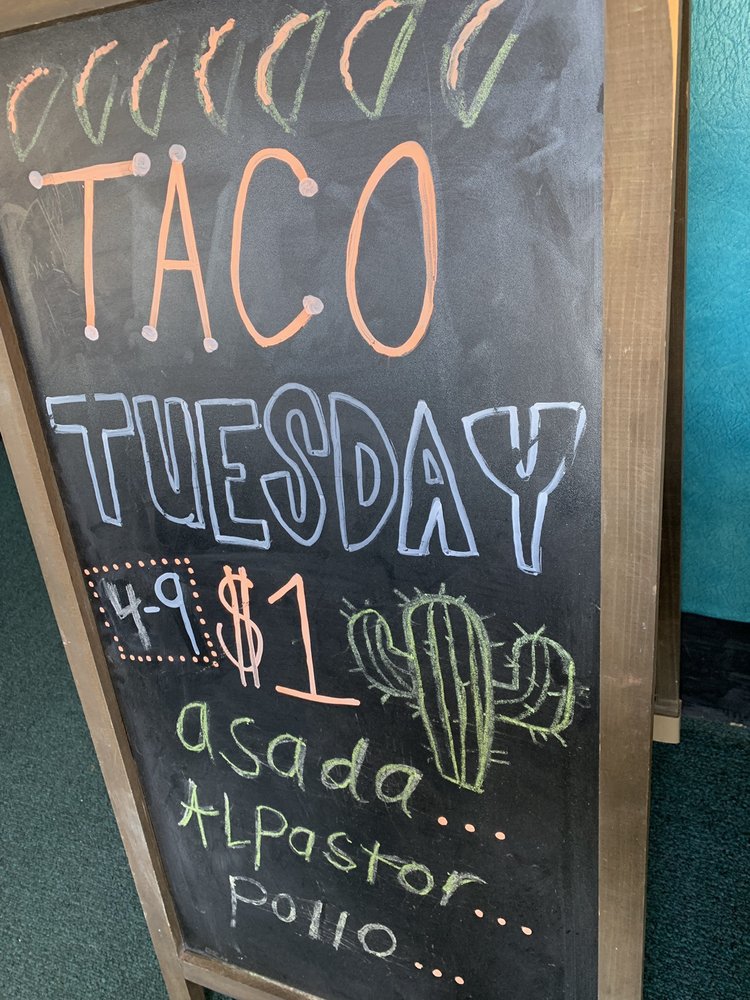 TACO
TUESDAY
4-9 $1
asada...
ALPastor...
pollo...